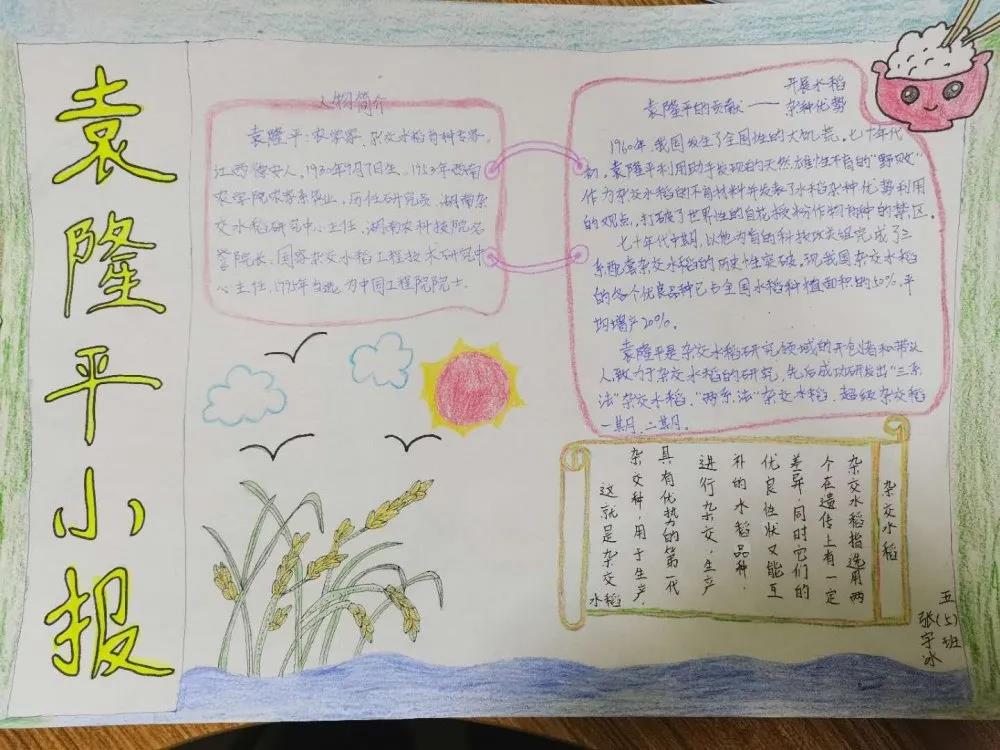 袁隆平小报
人物简介
袁隆平:农学家、杂交水稻育种专家.
江西德安人,1930年9月7日生.1953年西南
农学院农学系毕业,历任研究员、湖南杂
交水稻研究中心主任、湖南农科技院名
誉院长、国家杂交水稻工程技术研究中
心主任,1995年当选为中国工程院院士.
开展水稻
袁隆平的贡献——杂种优势
1960年,我国发生了全国性的大饥荒.七十年代
初,袁隆平利用助手发现的天然雄性不育的“野败”
作为杂交水稻的不育材料并发表了水稻杂种优势利用
的观点,打破了世界性的自花授粉作物育种的禁区.
七十年代中期,以他为首的科技攻关组完成了三
系配套杂交水稻的历史性突破.现我国杂交水稻
的各个优良品种已占全国水稻种植面积的50%,平
均增产20%.
袁隆平是杂交水稻研究领域的开创者和带头
人,致力于杂交水稻的研究,先后成功研发出“三系
法”杂交水稻、“两系法”杂交水稻、超级杂交稻
一期、二期.
杂交水稻
杂交水稻指选用两
个在遗传上有一定
差异,同时它们的
优良性状又能互
补的水稻品种,
进行杂交,生产
具有优势的第一代
杂交种,用于生产,
这就是杂交
水稻
五(5)班
张宇冰